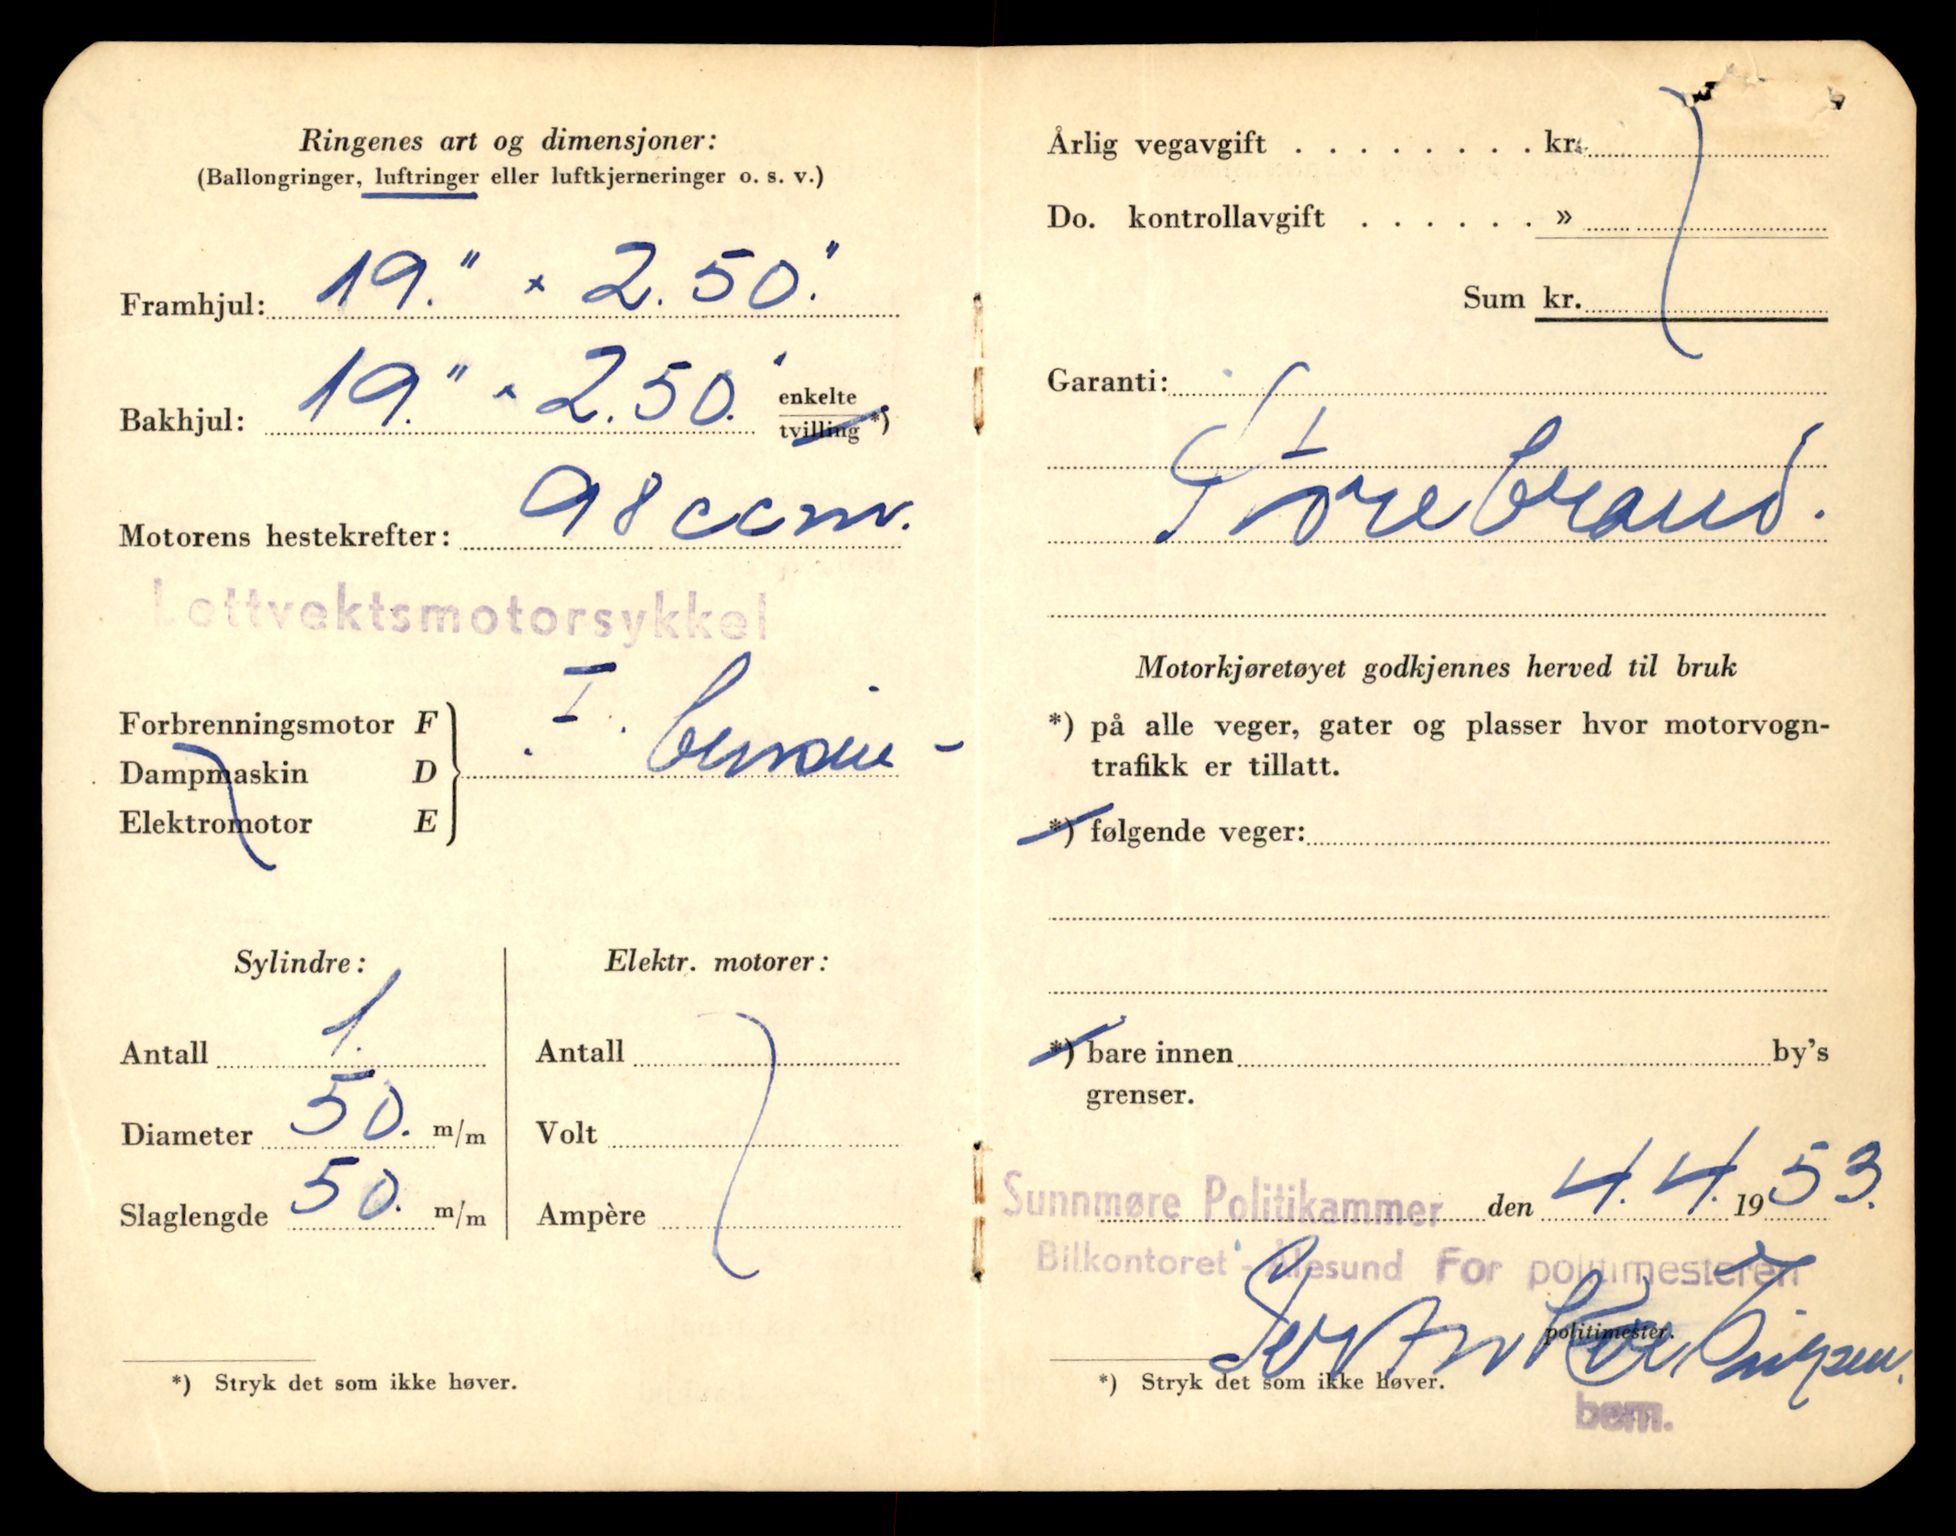 Ringenes art og dimensjoner:
(Ballongringer, luftringer eller luftkjerneringer o. s. v.)
Framhjul: 19." × 2.50."
Bakhjul: 19." × 2.50." enkelte
tvilling *)
Motorens hestekrefter: 98 ccm.
Lettvektsmotorsykkel
Forbrenningsmotor F
Dampmaskin D
Elektromotor E
I. bensin -
Sylindre:
Antall 1.
Diameter 50. m/m
Slaglengde 50. m/m
Elektr. motorer:
Antall
Volt
Ampère
*) Stryk det som ikke høver.
Årlig vegavgift . . . . . . . . kr.
Do. kontrollavgift . . . . . . »
Sum kr.
Garanti:
Storebrand.
Motorkjøretøyet godkjennes herved til bruk
*) på alle veger, gater og plasser hvor motorvogn-
trafikk er tillatt.
*) følgende veger:
*) bare innen by's
grenser.
Sunnmøre Politikammer den 4.4. 1953.
Bilkontoret - Ålesund For politimesteren
politimester.
*) Stryk det som ikke høver.
bem.